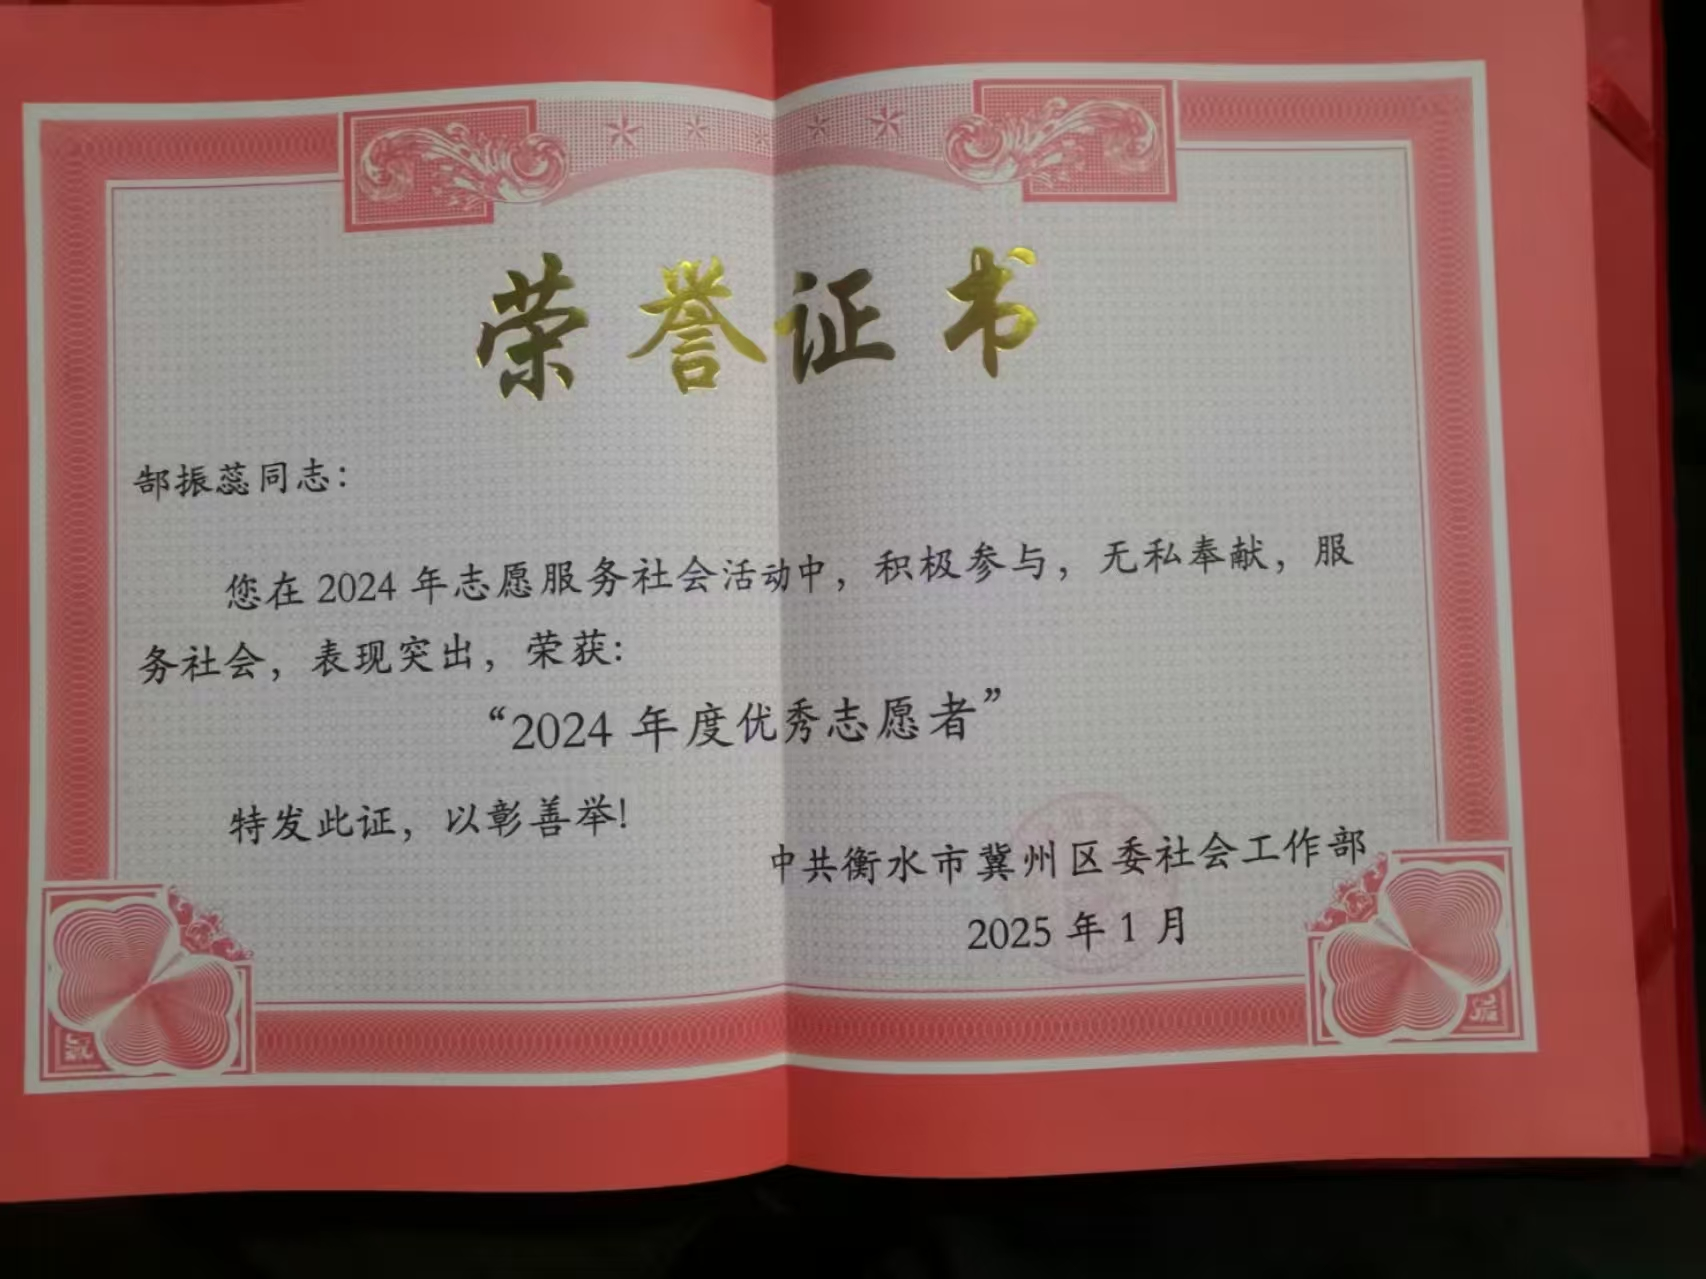 荣誉证书
郜振蕊同志：
您在 2024 年志愿服务社会活动中，积极参与，无私奉献，服
务社会，表现突出，荣获：
“2024 年度优秀志愿者”
特发此证，以彰善举！
中共衡水市冀州区委社会工作部
2025 年 1 月